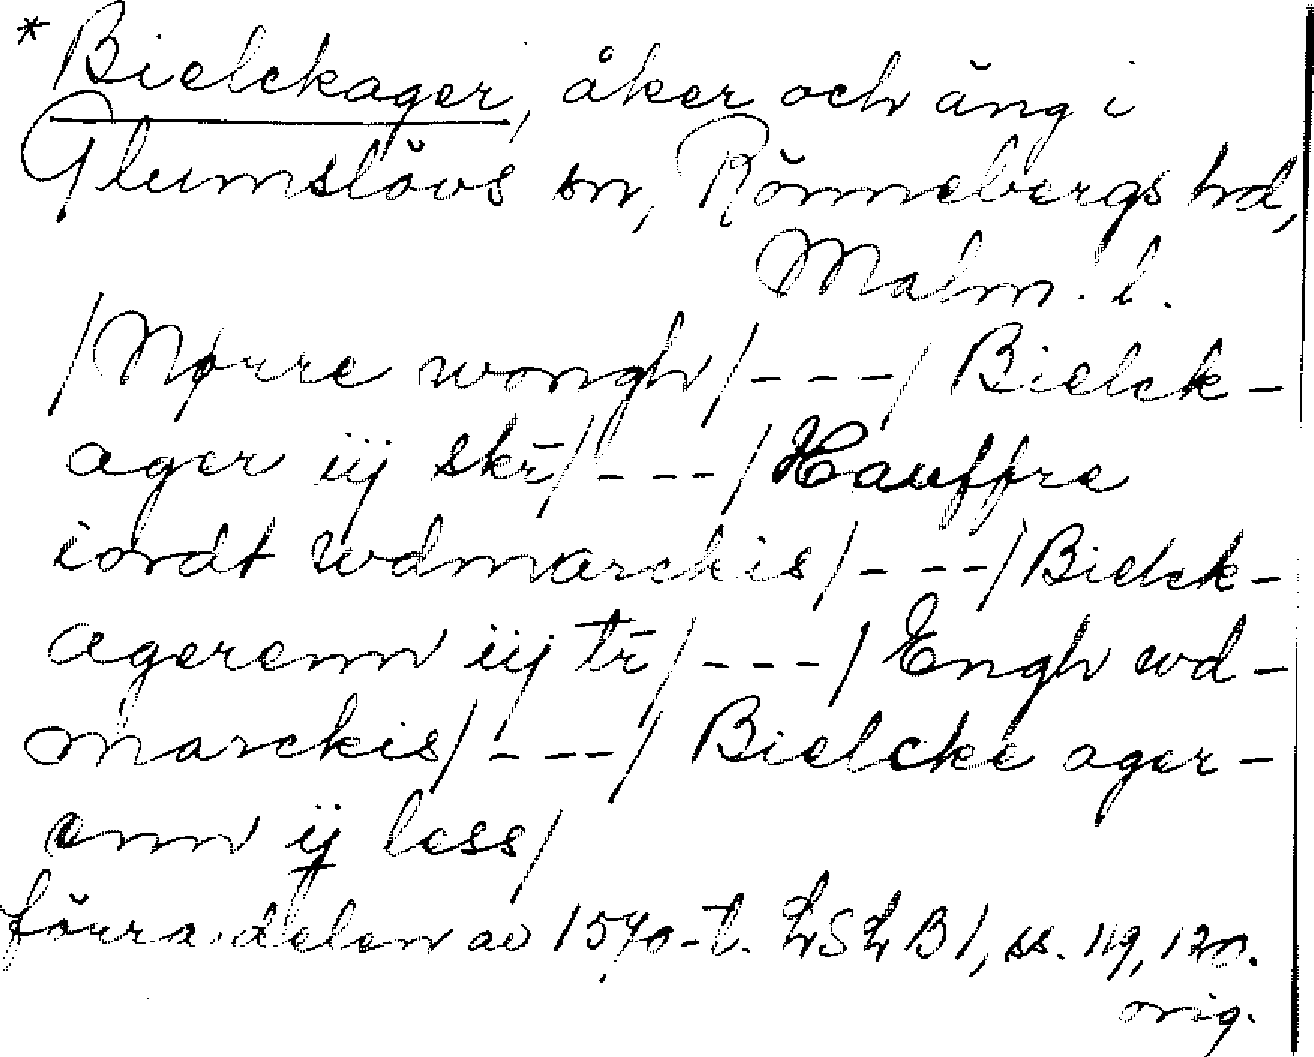 * Bielckager, åker och äng i
Glumslövs sn, Rönnebergs hd,
Malm. l.
/Nørre wongh/---/ Bielck-
ager iij skr̄/---/Hauffre
iordt wdmarckis/---/Bielck-
agerenn iiij tr̄/---/Engh wd-
marckis/---/ Bielcke ager-
enn ij less/
förra delen av 1570-t. LSLB1, ss. 119, 120.
orig.